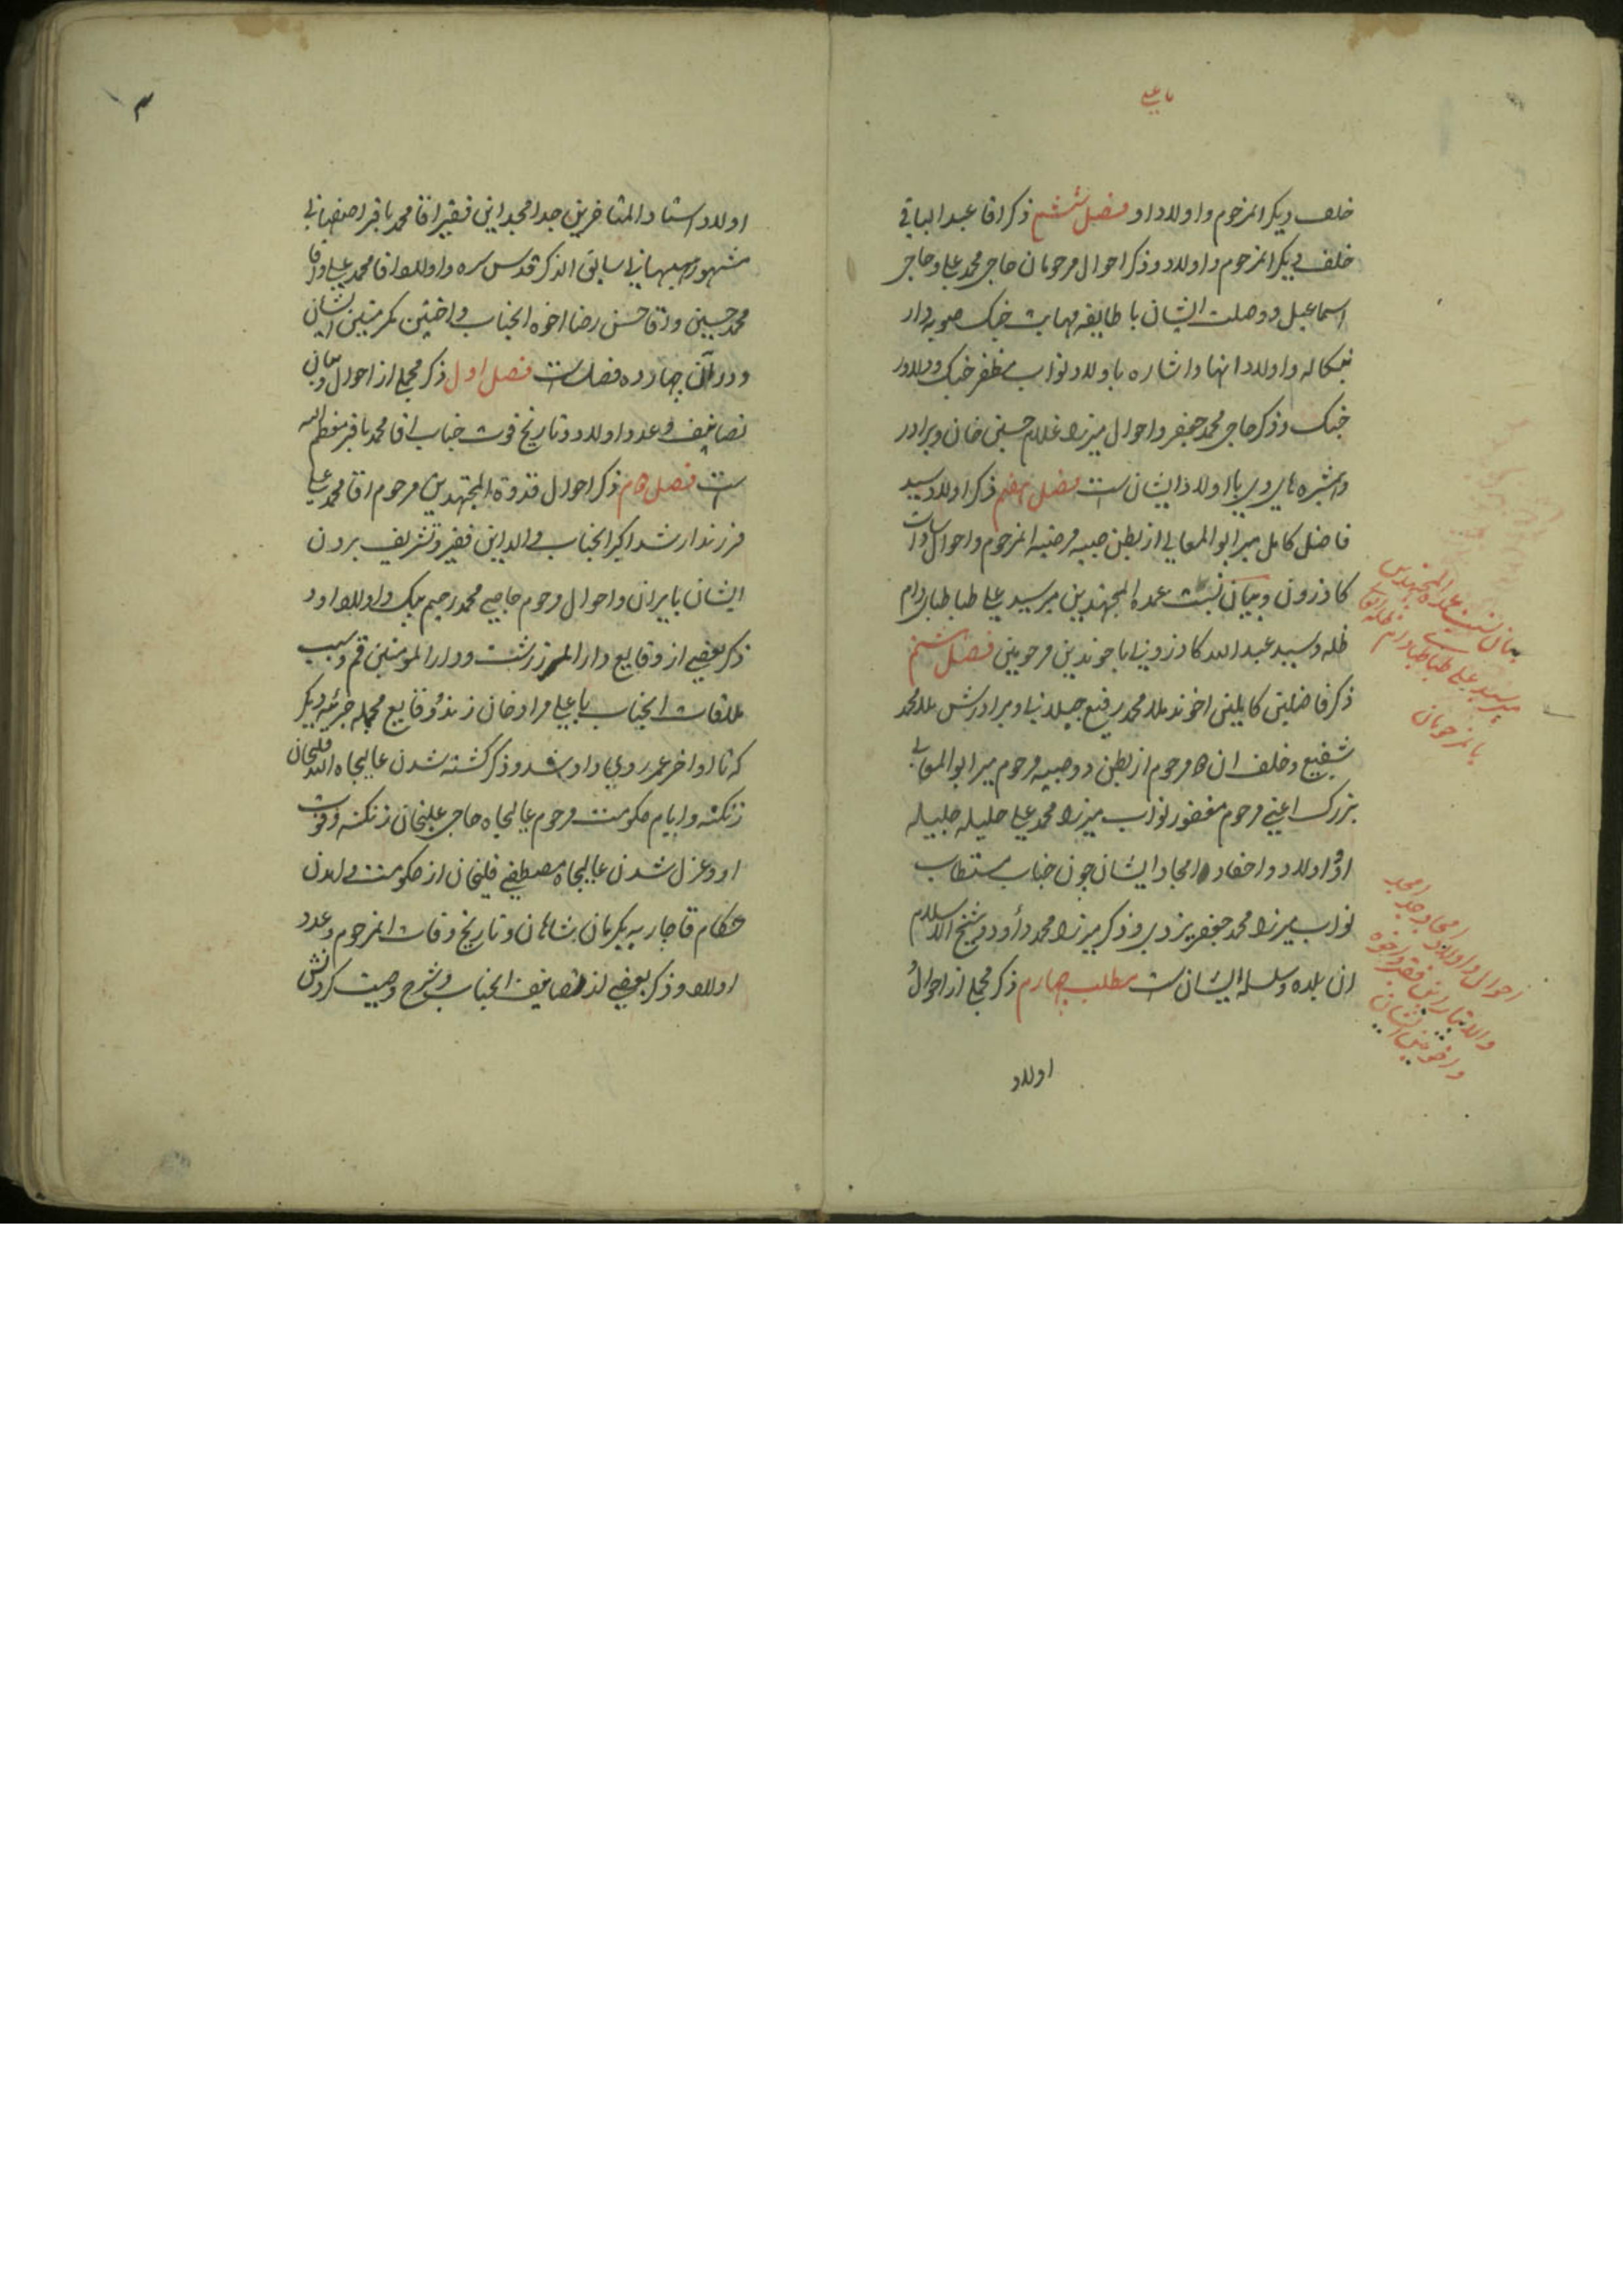 یا علی
خلف دیکر انمرحوم و اولاد او فصل ششم ذکر اقا عبد الباقی
خلف دیکر انمرحوم و اولاد و ذکر احوال مرحومان حاجی محمد علی و حاجی
اسماعیل و وصلت ایشان با طایفه مهابت جنک صوبه دار
بنکاله و اولاد انها و اشاره باولاد نواب مظفر جنک و دلاور
جنک و ذکر حاجی محمد جعفر و احوال میرزا غلام حسین خان و برادر
و همشیره های وی با اولاد ایشان ست فصل هفتم ذکر اولاد سید
فاضل کامل میر ابو المعالی از بطن صبیه مرضیه انمرحوم و احوال سادات
کازرون و بیان نسبت عمده المجتهدین میر سید علی طباطبا دام
ظله و سید عبد الله کازرونی با خوندین مرحومین فصل هشتم
ذکر فاضلین کاملین اخوند ملا محمد رفیع جیلانی و برادرش ملا محمد
شفیع و خلف ان مرحوم از بطن دو صبیه مرحوم میر ابو المعالی
بزرک اعنی مرحوم مغفور نواب میرزا محمد علی حلیله جلیله
او و اولاد و احفاد امجاد ایشان چون جناب مستطاب
نواب میرزا محمد جعفر یزدی و ذکر میرزا محمد داود و شیخ الاسلام
ان بلده و سلسله ایشان ست مطلب چهارم ذکر مجملی از احوال
اولاد
بیان نسبت عمده المجتهدین
میر سید علی طباطبا دام ظله
با مرحومان
احوال و اولاد امجاد جد امجد
این فقیر و اخوه
و اختین ایشان
اولاد استاد المتاخرین جد امجد این فقیر اقا محمد باقر اصفهانی
مشهور ببهبهانی سابق الذکر قدس سره و اولاد اقا محمد علی و اقا
محمد حسین و اقا حسن رضا اخوه انجناب و اختین مکرمتین ایشان
و در آن چهارده فصل ست فصل اول ذکر مجملی از احوال و بیان
تصانیف و عدد اولاد و تاریخ فوت جناب اقا محمد باقر
ست فصل دوم ذکر احوال قدوة المجتهدین مرحوم اقا محمد علی
فرزند ارشد اکبر انجناب والد این فقیر و تشریف بردن
ایشان بایران و احوال مرحوم حاجی محمد رحیم بیک و اولاد او و
ذکر بعضی از وقایع دار المرز رشت و دار المومنین قم و سبب
ملاقات انجناب با علی مراد خان زند و وقایع مجمله جزئیه دیکر
که تا اواخر عمر روی داد و ذکر کشته شدن عالیجاه الله قلیخان
زنکنه و ایام حکومت مرحوم عالیجاه حاجی علیخان زنکنه و فوت
او و عزل شدن عالیجاه مصطفی قلیخان از حکومت و امدن
حکام قاجاریه بکرمان شاهان و تاریخ وفات انمرحوم و عدد
اولاد و ذکر بعضی از تصانیف انجناب و شرح وصیت کردنش